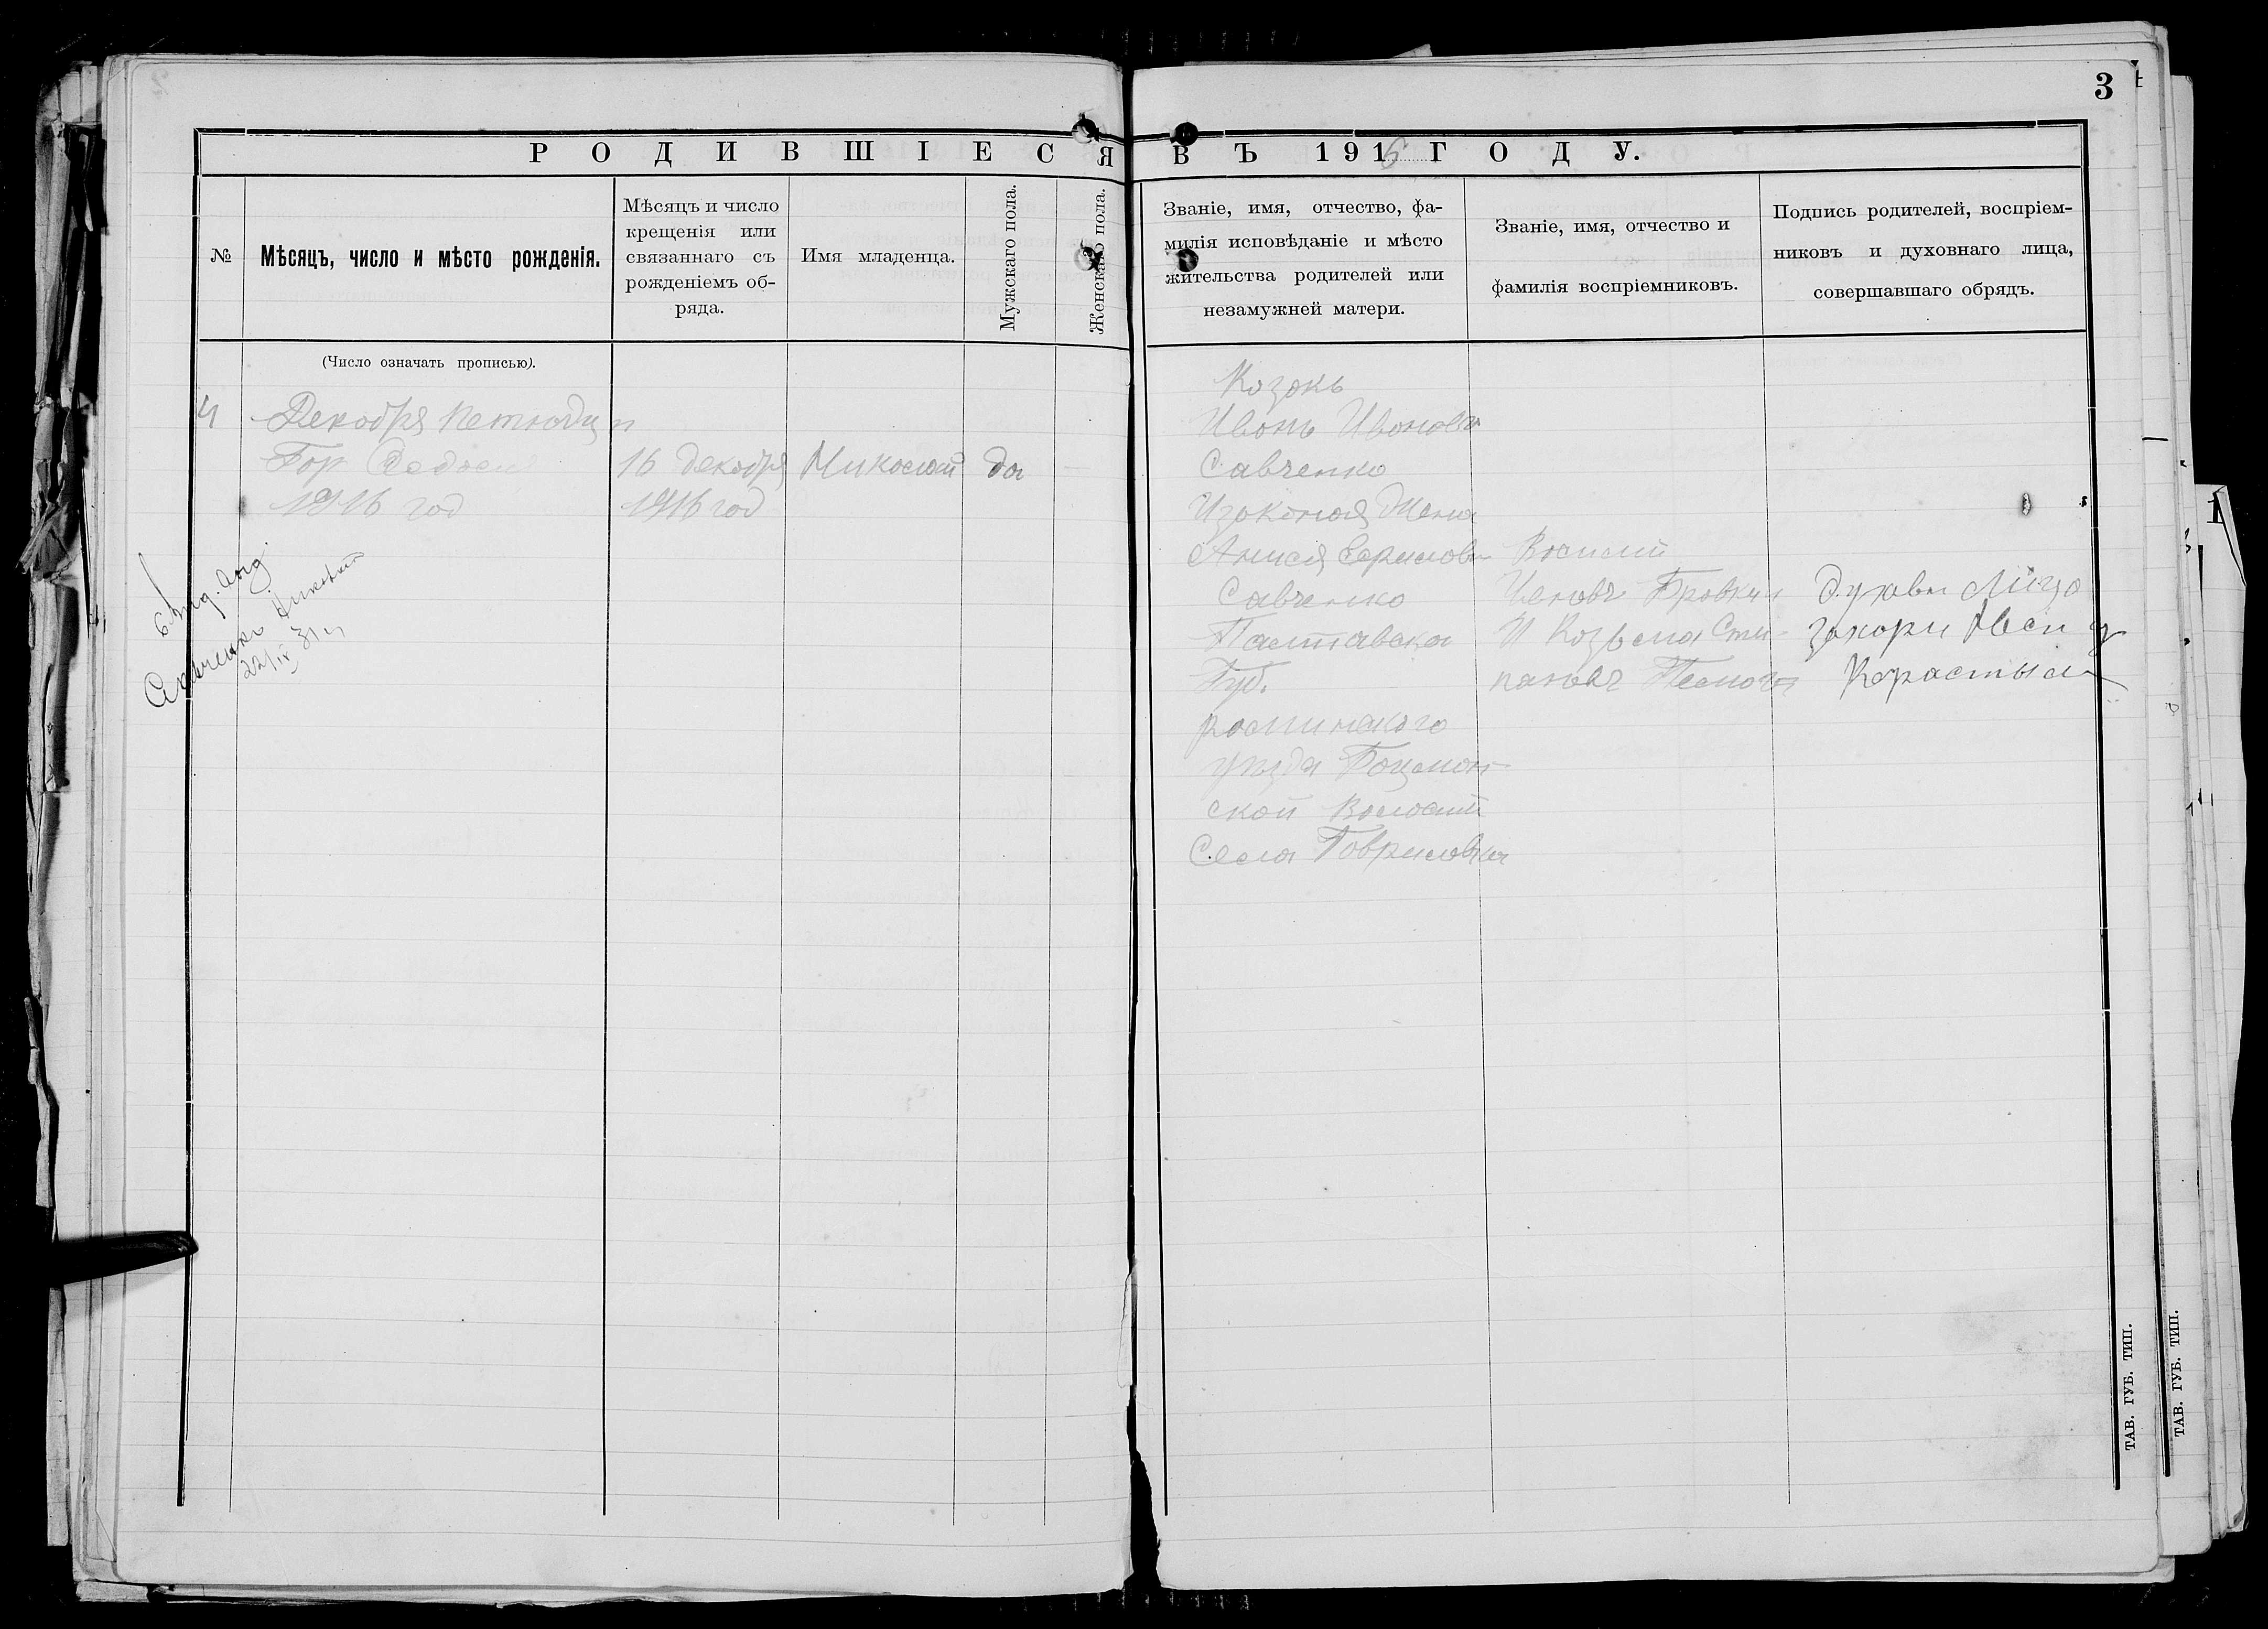 3
РОДИВШІЕСЯ ВЪ 1916 ГОДУ.
№
Мѣсяцъ, число и мѣсто рожденія.
Мѣсяцъ и число
крещенія или
связаннаго съ
рожденіемъ об-
ряда.
Имя младенца.
Мужскаго пола.
Женскаго пола.
Званіе, имя, отчество, фа-
милія исповѣданіе и мѣсто
жительства родителей или
незамужней матери.
Званіе, имя, отчество и
фамилія воспріемниковъ.
Подпись родителей, воспріем-
никовъ и духовнаго лица,
совершавшаго обрядъ.
(Число означать прописью).
4
Декабря
Гор
1916 год
16 декабря
1916 год
Миколай
да
Козакъ
Иванъ Ивановъ
Савченко
Изаконая Жена
Анися
Савченко
Палтавска
Губ.
уѣзда
ской Волости
Села Гавриловки
Василий
Бровкин
И Козьма Сти-
пановъ
Духавн Лицо
захари
Карастыл
Савченко
22/IV 31 г
ТАВ. ГУБ. ТИП.
ТАВ. ГУБ. ТИП.